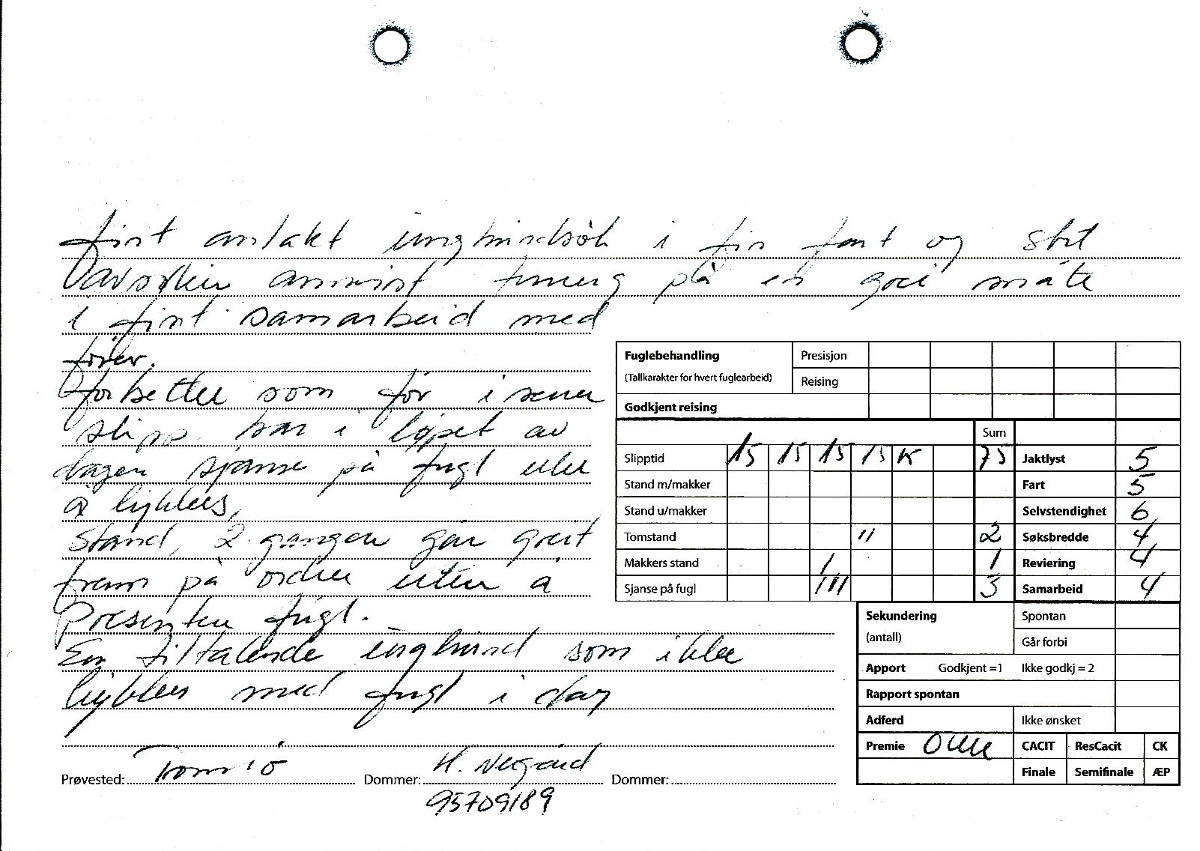 fint anlakt unghundsøk i fin fart og stil
Vansklig anvist tereng på en god måte
i fint samarbeid med
fører.
forbetter som før i sener
slipp. har i løpet av
dagen sjanse på fugl uten
å lykkes,
stand, 2 gangen går greit
frem på ordre uten å
Presenten fugl.
En tiltalende unghund som ikke
lykkes med fugl i dag
Fuglebehandling Presisjon
(Tallkarakter for hvert fuglearbeid) Reising
Godkjent reising
Sum
Slipptid 15 15 15 15 K 75 Jaktlyst 5
Stand m/makker Fart 5
Stand u/makker Selvstendighet 6
Tomstand 11 2 Søksbredde 4
Makkers stand 1 1 Reviering 4
Sjanse på fugl 111 3 Samarbeid 4
Sekundering Spontan
(antall) Går forbi
Apport Godkjent =1 Ikke godkj = 2
Rapport spontan
Adferd Ikke ønsket
Premie CACIT ResCacit CK
Finale Semifinale ÆP
Prøvested: Tromsø Dommer: H. Dommer:
95709189